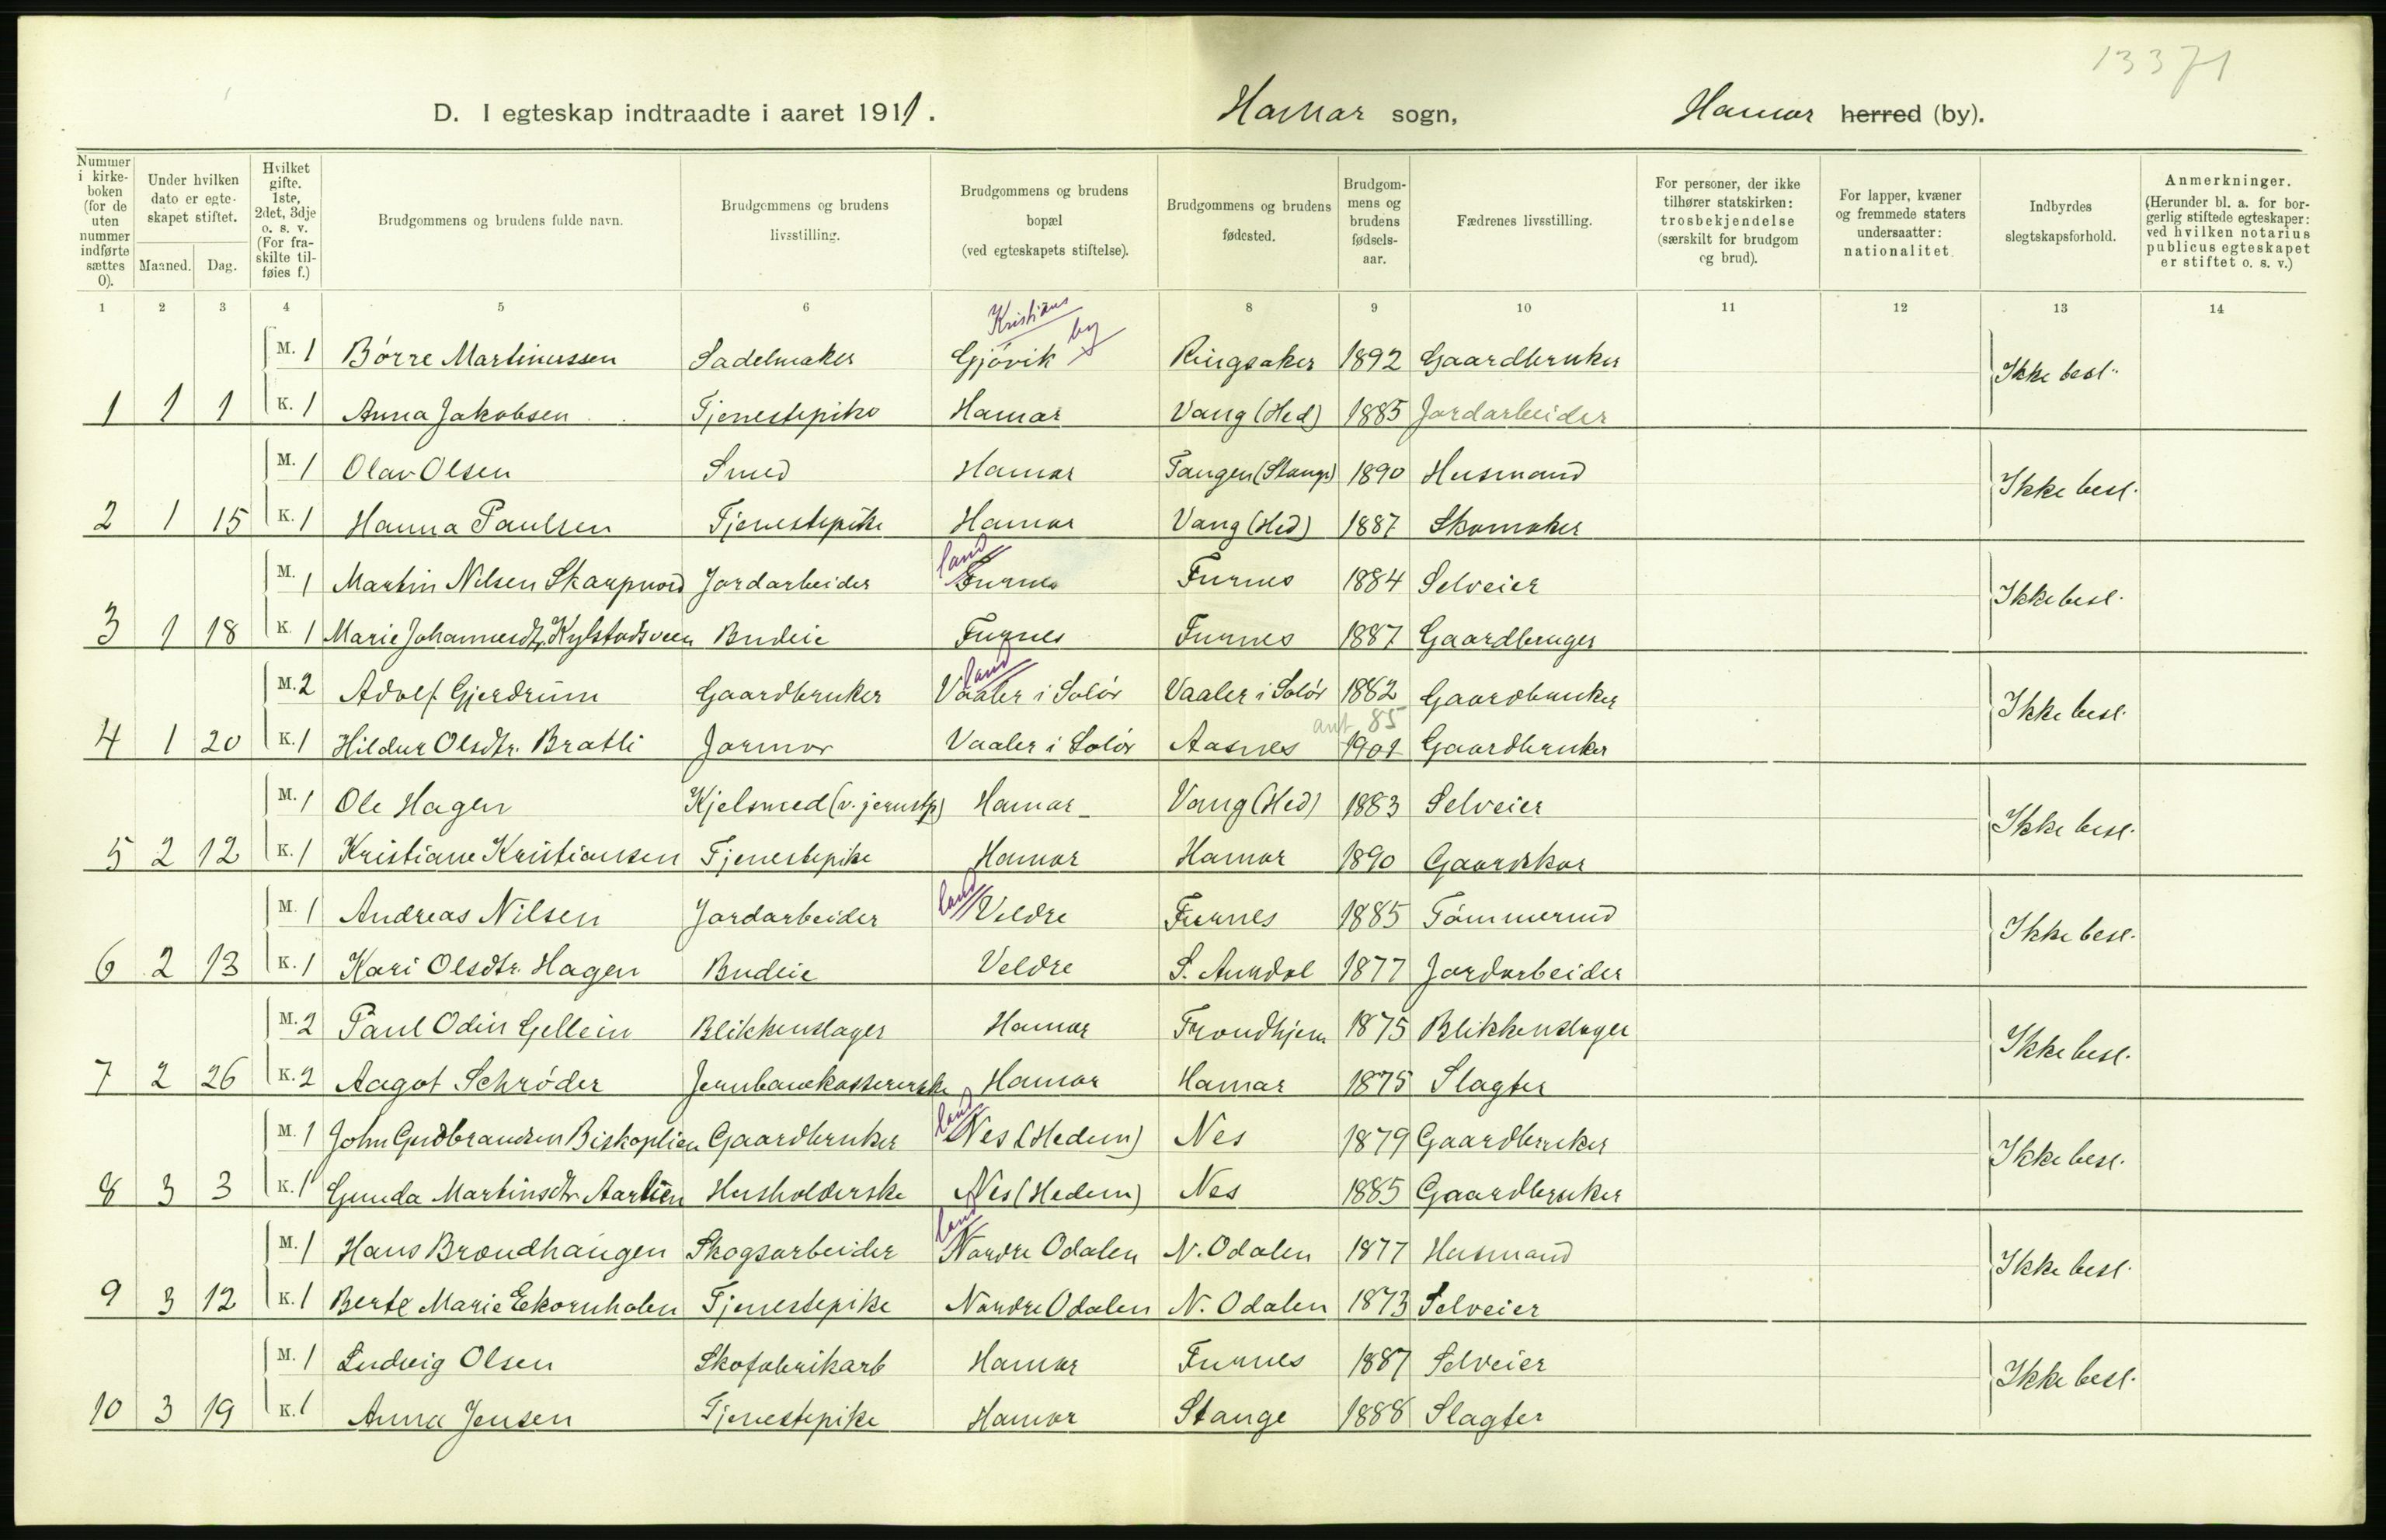 13371
D. I egteskap indtraadte i aaret 1911. Hamar sogn, Hamar herred (by).
Nummer i kirkeboken (for de uten nummer indførte sættes 0). Under hvilken dato er egteskapet stiftet. Maaned. Dag. Hvilket gifte. 1ste, 2det, 3dje o. s. v. (For fraskilte tilføies f.) Brudgommens og brudens fulde navn. Brudgommens og brudens livsstilling. Brudgommens og brudens bopæl (ved egteskapets stiftelse). Brudgommens og brudens fødested. Brudgommens og brudens fødselsaar. Fædrenes livsstilling. For personer, der ikke tilhører statskirken: trosbekjendelse (særskilt for brudgom og brud). For lapper, kvæner og fremmede staters undersaatter: nationalitet. Indbyrdes slegtskapsforhold. Anmerkninger. (Herunder bl. a. for borgerlig stiftede egteskaper: ved hvilken notarius publicus egteskapet er stiftet o. s. v.)
1 2 3 4 5 6 7 8 9 10 11 12 13 14
Kristians by
M. 1 Børre Martinussen Sadelmaker Gjøvik Ringsaker 1892 Gaardbruker Ikke besl.
1 1 1 K. 1 Anna Jakobsen Tjenestepike Hamar Vang (Hed) 1885 Jordarbeider
M. 1 Olav Olsen Smed Hamar Tangen (Stange) 1890 Husmand Ikke besl.
2 1 15 K. 1 Hanna Paulsen Tjenestepike Hamar Vang (Hed) 1887 Skomaker
land
M. 1 Martin Nilsen Skarpnord Jordarbeider Furnes Furnes 1884 Selveier Ikke besl.
3 1 18 K. 1 Marie Johannesdtr. Kylstadsveen Budeie Furnes Furnes 1887 Gaardbruger
land
M. 2 Adolf Gjerdrum Gaardbruker Vaaler i Solør Vaaler i Solør 1882 Gaardbruker Ikke besl.
ant 85
4 1 20 K. 1 Hildur Olsdtr. Bratli Jormor Vaaler i Solør Aasnes 1901 Gaardbruker
M. 1 Ole Hagen Kjelsmed (v. jernstp) Hamar Vang (Hed) 1883 Selveier Ikke besl.
5 2 12 K. 1 Kristiane Kristiansen Tjenestepike Hamar Hamar 1890 Gaardskar
land
M. 1 Andreas Nilsen Jordarbeider Veldre Furnes 1885 Tømmermd Ikke besl.
6 2 13 K. 1 Kari Olsdtr. Hagen Budeie Veldre S. Aurdal 1877 Jordarbeider
M. 2 Paul Odin Gellein Blikkenslager Hamar Trondhjem 1875 Blikkenslager Ikke besl.
7 2 26 K. 2 Aagot Schrøder Jernbanekassererske Hamar Hamar 1875 Slagter
land
M. 1 John Gudbrandsen Biskoplien Gaardbruker Nes (Hedem) Nes 1879 Gaardbruker Ikke besl.
8 3 3 K. 1 Gunda Martinsdtr. Aarlien Husholderske Nes (Hedem) Nes 1885 Gaardbruker
land
M. 1 Hans Brændhaugen Skogsarbeider Nordre Odalen N. Odalen 1877 Husmand Ikke besl.
9 3 12 K. 1 Berte Marie Ekornholen Tjenestepike Nordre Odalen N. Odalen 1873 Selveier
M. 1 Ludvig Olsen Skofabrikarb Hamar Furnes 1887 Selveier Ikke besl.
10 3 19 K. 1 Anna Jensen Tjenestepike Hamar Stange 1888 Slagter